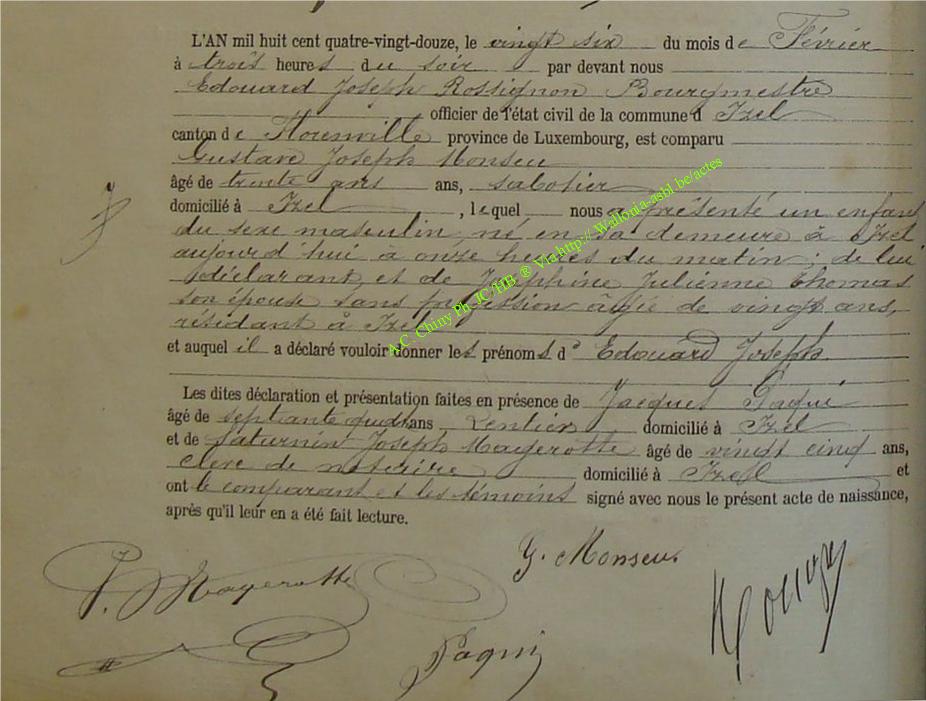 L'AN mil huit cent quatre-vingt-douze, le vingt six du mois de Février
à trois heures du soir par devant nous
Edouard Joseph Rossignon Bourgmestre
officier de l'état civil de la commune d Izel
canton de Florenville province de Luxembourg, est comparu
Gustave Joseph Monseu
âgé de trente ans ans, sabotier
domicilié à Izel , lequel nous a présenté un enfant
du sexe masculin, né en sa demeure à Izel
aujourd'hui à onze heures du matin ; de lui
déclarant, et de Joséphine Julienne Thomas
son épouse sans profession âgée de vingt ans,
résidant à Izel
et auquel il a déclaré vouloir donner les prénoms d' Edouard Joseph.
Les dites déclaration et présentation faites en présence de Jacques Paqui
âgé de septante quatre ans Rentier domicilié à Izel
et de Saturnin Joseph Magerotte âgé de vingt cinq ans,
clerc de notaire domicilié à Izel et
ont le comparant et les témoins signé avec nous le présent acte de naissance,
après qu'il leur en a été fait lecture.
G. Monseu.
J. Magerotte
Paqui
A.C. Chiny Ph. JC/HB ® Via http:// Wallonia-asbl.be/actes